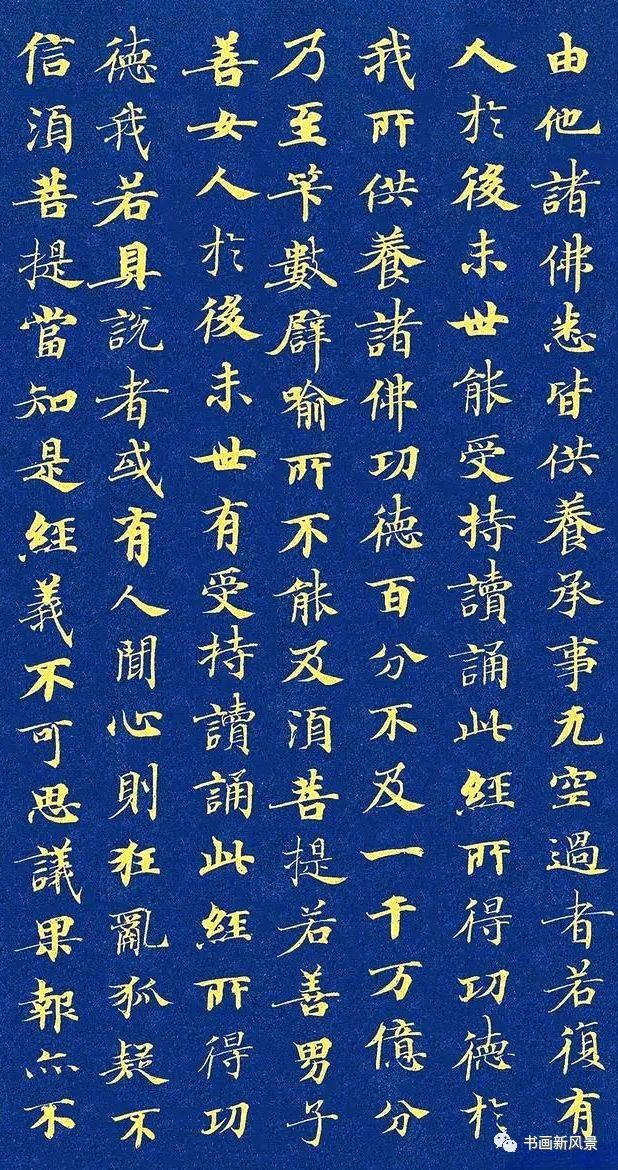 由他諸佛悉皆供養承事无空過者若復有
人於後末世能受持讀誦此經所得功德於
我所供養諸佛功德百分不及一千万億分
乃至筭數譬喻所不能及須菩提若善男子
善女人於後末世有受持讀誦此經所得功
德我若具說者或有人聞心則狂亂狐疑不
信須菩提當知是經義不可思議果報亦不
书画新风景